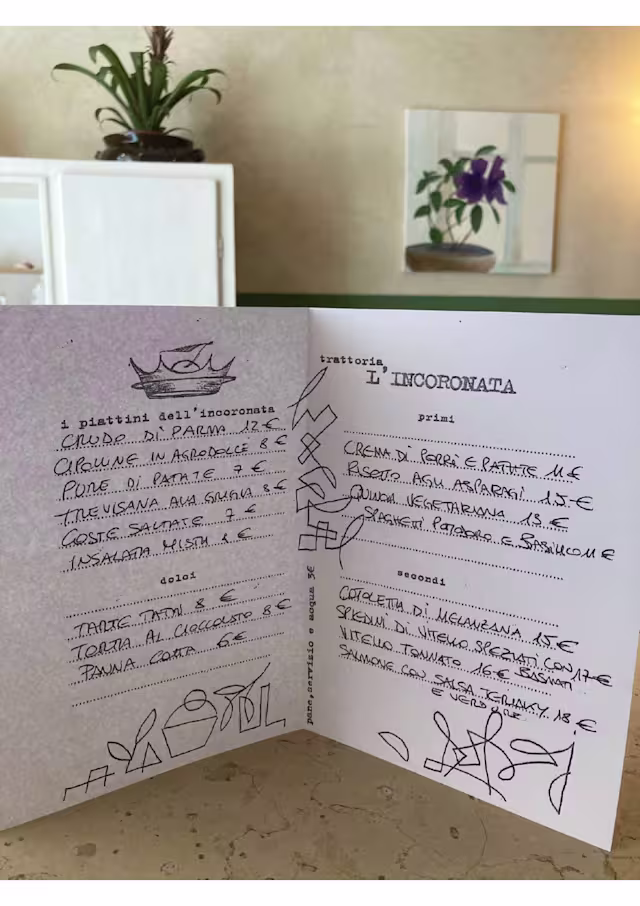 i piattini dell'incoronata
CRUDO DI PARMA 12 €
CIPOLLINE IN AGRODOLCE 8 €
PURE DI PATATE 7 €
TREVISANA ALLA GRIGLIA 8 €
COSTE SALTATE 7 €
INSALATA MISTA €
dolci
TARTE TATIN 8 €
TORTA AL CIOCCOLATO 8 €
PANNA COTTA 6 €
pane, servizio e acqua 3€
trattoria
L'INCORONATA
primi
CREMA DI PORRI E PATATE 11 €
RISOTTO AGLI ASPARAGI 15 €
QUINOA VEGETARIANA 13 €
SPAGHETTI POMODORO E BASILICO 11 €
secondi
COTOLETTA DI MELANZANA 15 €
SPIEDINI DI VITELLO SPEZIATI CON 17 €
VITELLO TONNATO 16 € BASMATI
SALMONE CON SALSA TERIAKY 18 €
E VERDURE